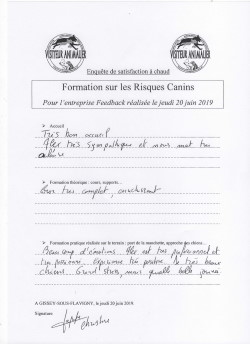 VISITEUR ANIMALIER
VISITEUR ANIMALIER
Enquête de satisfaction à chaud
Formation sur les Risques Canins
Pour l'entreprise Feedback réalisée le jeudi 20 juin 2019
➢ Accueil
Très bon accueil
très sympathique et nous met très
➢ Formation théorique : cours, supports…
très complet, enrichissant
➢ Formation pratique réalisée sur le terrain : port de la muselière, approche des chiens…
Beaucoup d'émotions. est très professionnel et
très très beaux
chiens. Grand stress, mais quelle belle journée
A GISSEY-SOUS-FLAVIGNY, le jeudi 20 juin 2019.
Signature
Christine